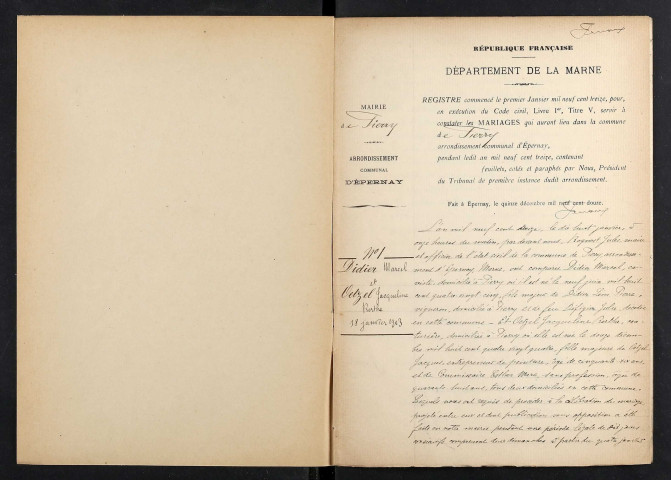 RÉPUBLIQUE FRANÇAISE
DÉPARTEMENT DE LA MARNE
MAIRIE
de Pierry
ARRONDISSEMENT
COMMUNAL
D'ÉPERNAY
REGISTRE commencé le premier Janvier mil neuf cent treize, pour,
en exécution du Code civil, Livre Ier, Titre V, servir à
constater les MARIAGES qui auront lieu dans la commune
de Pierry
arrondissement communal d'Epernay,
pendant ledit an mil neuf cent treize, contenant
feuillets, cotés et paraphés par Nous, Président
du Tribunal de première instance dudit arrondissement.
Fait à Epernay, le quinze décembre mil neuf cent douze.
No 1
Didier Marcel
et
Oetzel Jacqueline
Berthe
18 janvier 1913
L'an mil neuf cent treize le dix huit janvier à
onze heures du matin, par devant nous, Jules, maire
et officier de l'état civil de la commune de Pierry arrondisse-
ment d'Epernay Marne, ont comparu Didier Marcel,
domicilié à Pierry où il est né le neuf juin mil huit
cent quatre vingt cinq, fils majeur de Didier Pierre
vigneron, domicilié à Pierry et de
en cette commune. Et Oetzel Jacqueline Berthe, cou-
turière, domiciliée à Pierry où elle est née le
mil huit cent quatre vingt quatre, fille majeure de Oetzel
Jacques entrepreneur de peinture, âgé de cinquante ans
et de Marie, sans profession, âgée de
quarante huit ans, tous deux domiciliés en cette commune.
Lesquels nous ont requis de procéder à la célébration du mariage
projeté entre eux et dont publication sans opposition a été
faite en notre mairie pendant une période légale de dix jours
comprenant deux dimanches à partir du quatre janvier